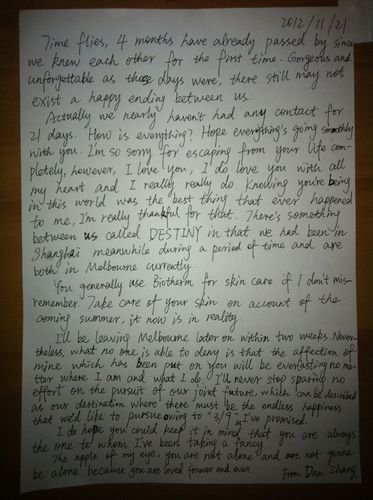 2012/11/21
Time flies, 4 months have already passed by since
we knew each other for the first time. Gorgeous and
unforgettable as those days were, there still may not
exist a happy ending between us.
Actually we nearly haven't had any contact for
21 days. How is everything? Hope everything's going smoothly
with you. I'm so sorry for escaping from your life com-
pletely, however, I love you, I do love you with all
my heart and I really really do. Knowing you're being
in this world was the best thing that ever happened
to me, I'm really thankful for that. There's something
between us called DESTINY in that we had been in
Shanghai meanwhile during a period of time and are
both in Melbourne currently.
You generally use Biotherm for skin care if I don't mis-
remember. Take care of your skin on account of the
coming summer, it now is in reality.
I'll be leaving Melbourne later on within two weeks. Never-
theless, what no one is able to deny is that the affection of
mine which has been put on you will be everlasting no ma-
tter where I am and what I do. I'll never stop sparing no
effort on the pursuit of our joint future, which can be described
as our destination where there must be the endless happiness
that we'd like to pursue owing to "3/9" I've promised.
I do hope you could keep it in mind that you are always
the one to whom I've been taking a fancy.
The apple of my eye, you are not alone and are not gonna
be alone because you are loved forever and ever.
From Dan Zhang.